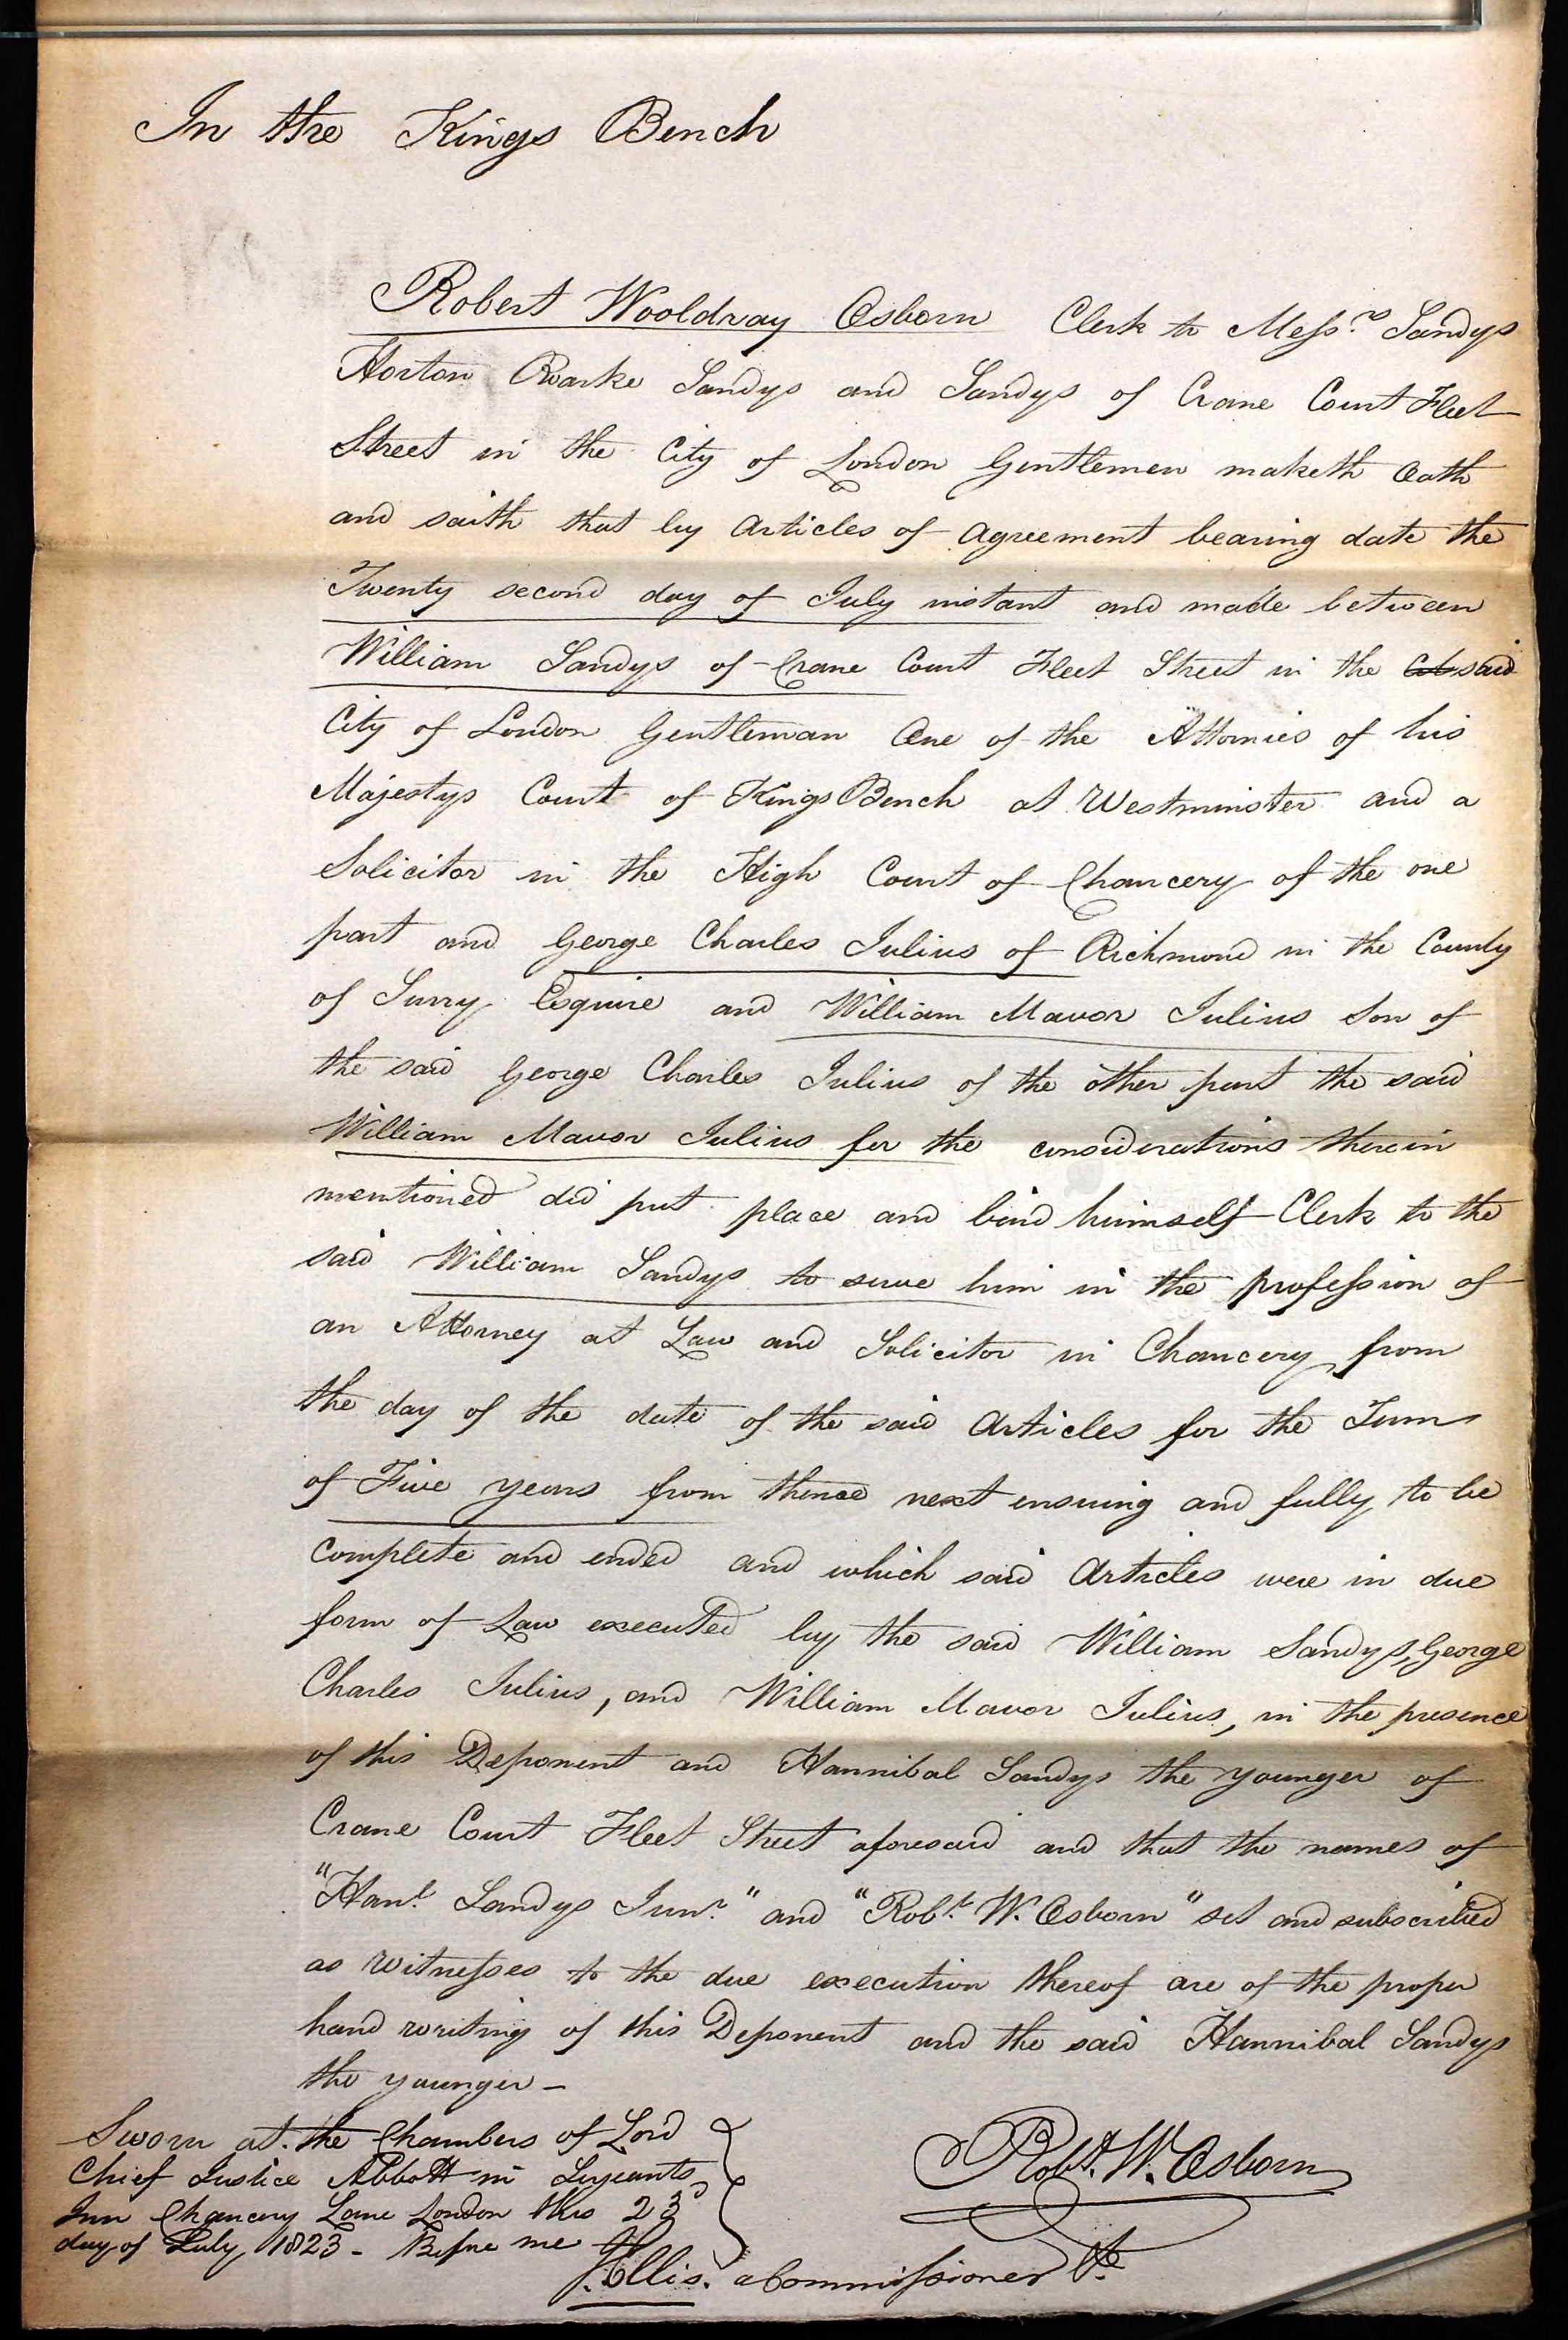 In the Kings Bench
Robert Wooldray Osborn Clerk to Mess.rs Sandys
Horton Roarke Sandys and Sandys of Crane Court Fleet
Street in the City of London Gentlemen maketh Oath
and saith that by Articles of Agreement bearing date the
Twenty second day of July instant and made between
William Sandys of Crane Court Fleet Street in the said
City of London Gentleman One of the Attornies of his
Majestys Court of Kings Bench at Westminster and a
Solicitor in the High Court of Chancery of the one
part and George Charles Julius of Richmond in the County
of Surry Esquire and William Mavor Julius Son of
the said George Charles Julius of the other part the said
William Mavor Julius for the considerations therein
mentioned did put place and bind himself Clerk to the
said William Sandys to serve him in the profession of
an Attorney at Law and Solicitor in Chancery from
the day of the date of the said Articles for the Term
of Five years from thence next ensuing and fully to be
complete and ended and which said Articles were in due
form of Law executed by the said William Sandys, George
Charles Julius, and William Mavor Julius, in the presence
of this Deponent and Hannibal Sandys the younger of
Crane Court Fleet Street aforesaid and that the names of
"Hanl. Sandys Junr." and "Robt. W. Osborn" set and subscribed
as Witnesses to the due execution thereof are of the proper
hand writing of this Deponent and the said Hannibal Sandys
the younger –
Sworn at the Chambers of Lord
Chief Justice Abbott in Serjeants
Inn Chancery Lane London this 23d
day of July 1823 – Before me
Robt. W. Osborn
Ellis. a Commissioner &c